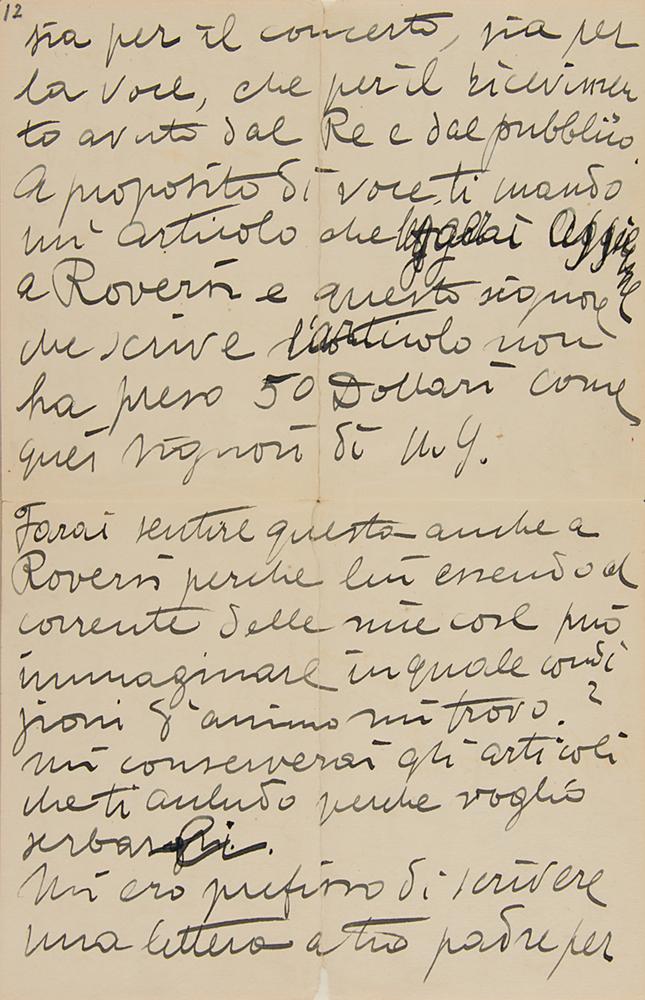 12
sia per il concerto, sia per
la voce, che per il ricevimen
to avuto dal Re e dal pubblico.
A proposito di voce, ti mando
un articolo che leggerai
a Roversi e questo signore
che scrive l'articolo non
ha preso 50 Dollari come
quei signori di N.Y.
Farai sentire questa anche a
Roversi perche lui essendo al
corrente delle mie cose può
immaginare in quale condi
zioni d'animo mi trovo.?
Mi conserverai gli articoli
che ti accludo perche voglio
serbargli.
Mi ero prefisso di scrivere
una lettera a tuo padre per